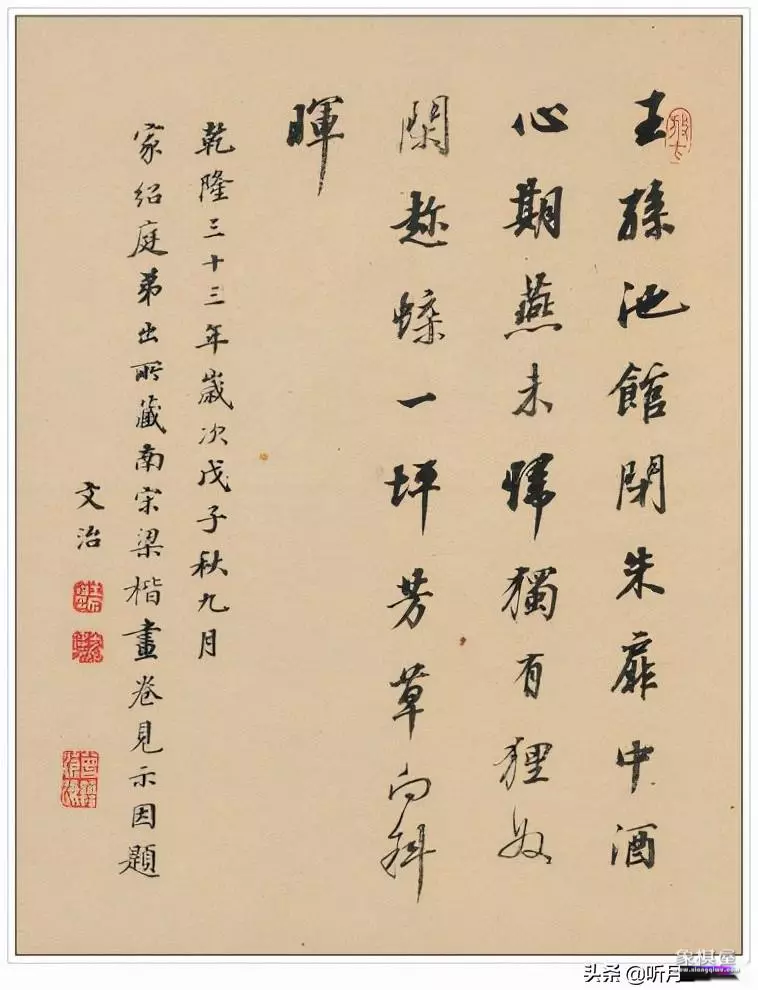 王孫池館閉朱扉中酒
心期燕未歸獨有狸奴
閑趂蝶一坪芳草向斜
暉
乾隆三十三年歲次戊子秋九月
家紹庭弟出所藏南宋梁楷畫卷見示因題
文治
象棋屋
www.xiangqiwu.com
头条 @听月